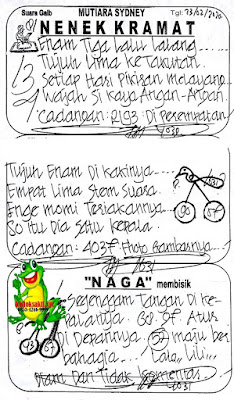 Suara Gaib MUTIARA SYDNEY Tgl: 23/02/2020
NENEK KRAMAT
Enam Tiga Lalu Lalang....
Tujuh Lima Ketakutan.
Setiap Hasi Pikiran Melayang
Wajah Si Kaya Angan-Angan.
Cadangan: 2193 Di Persimpatan
Tujuh Enam Di Kakinya....
Empat Lima Stem Suasa.
Enge momi Teriakannya...
So Itu Dia Satu Kepala.
Cadangan: 4027 Photo Gambarnya...
"NAGA" membisik
Segenggam Tangan Di Ke-
palanya
Di Depannya 52 maju ber
bahagia... Lala, Lili,,,
Hitam Dan Tidak